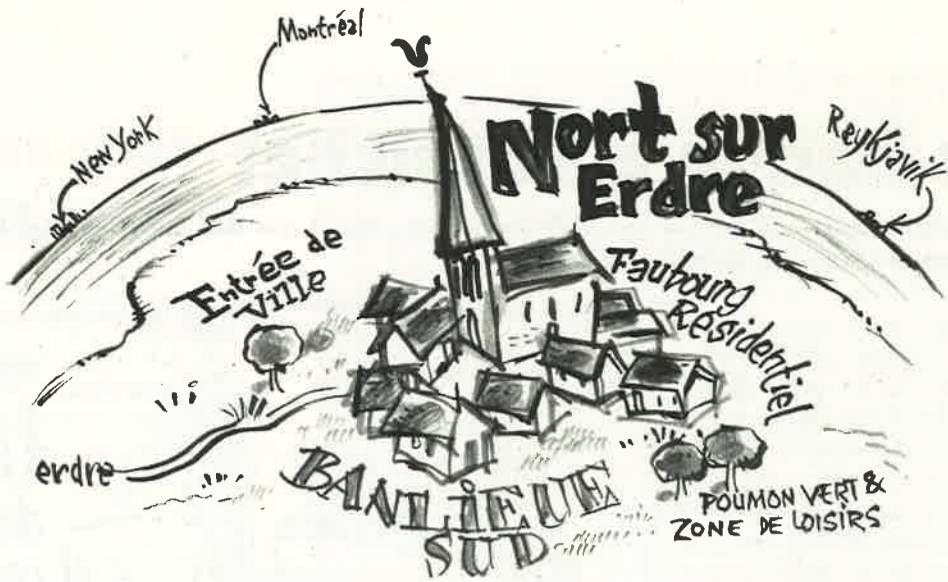 Montréal
New York
Nort sur
Erdre
Reykjavik
Entrée de
Ville
Faubourg
Résidentiel
erdre
BANLIEUE
SUD
POUMON VERT &
ZONE DE LOISIRS